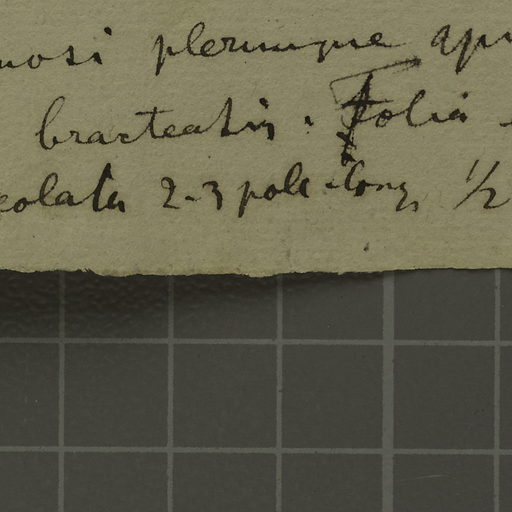 nosi plerumque api
bracteatis. Folia
eolata 2-3 poll. long. 1/2